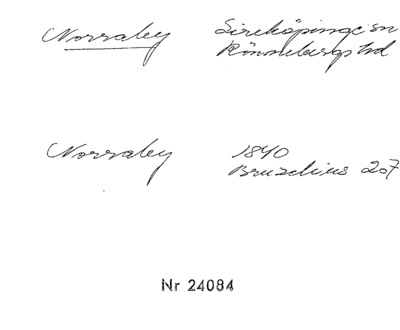 Norraby Sireköpinge sn
Rönnebergs hd
Norraby 1840
Bruzelius 207
Nr 24084